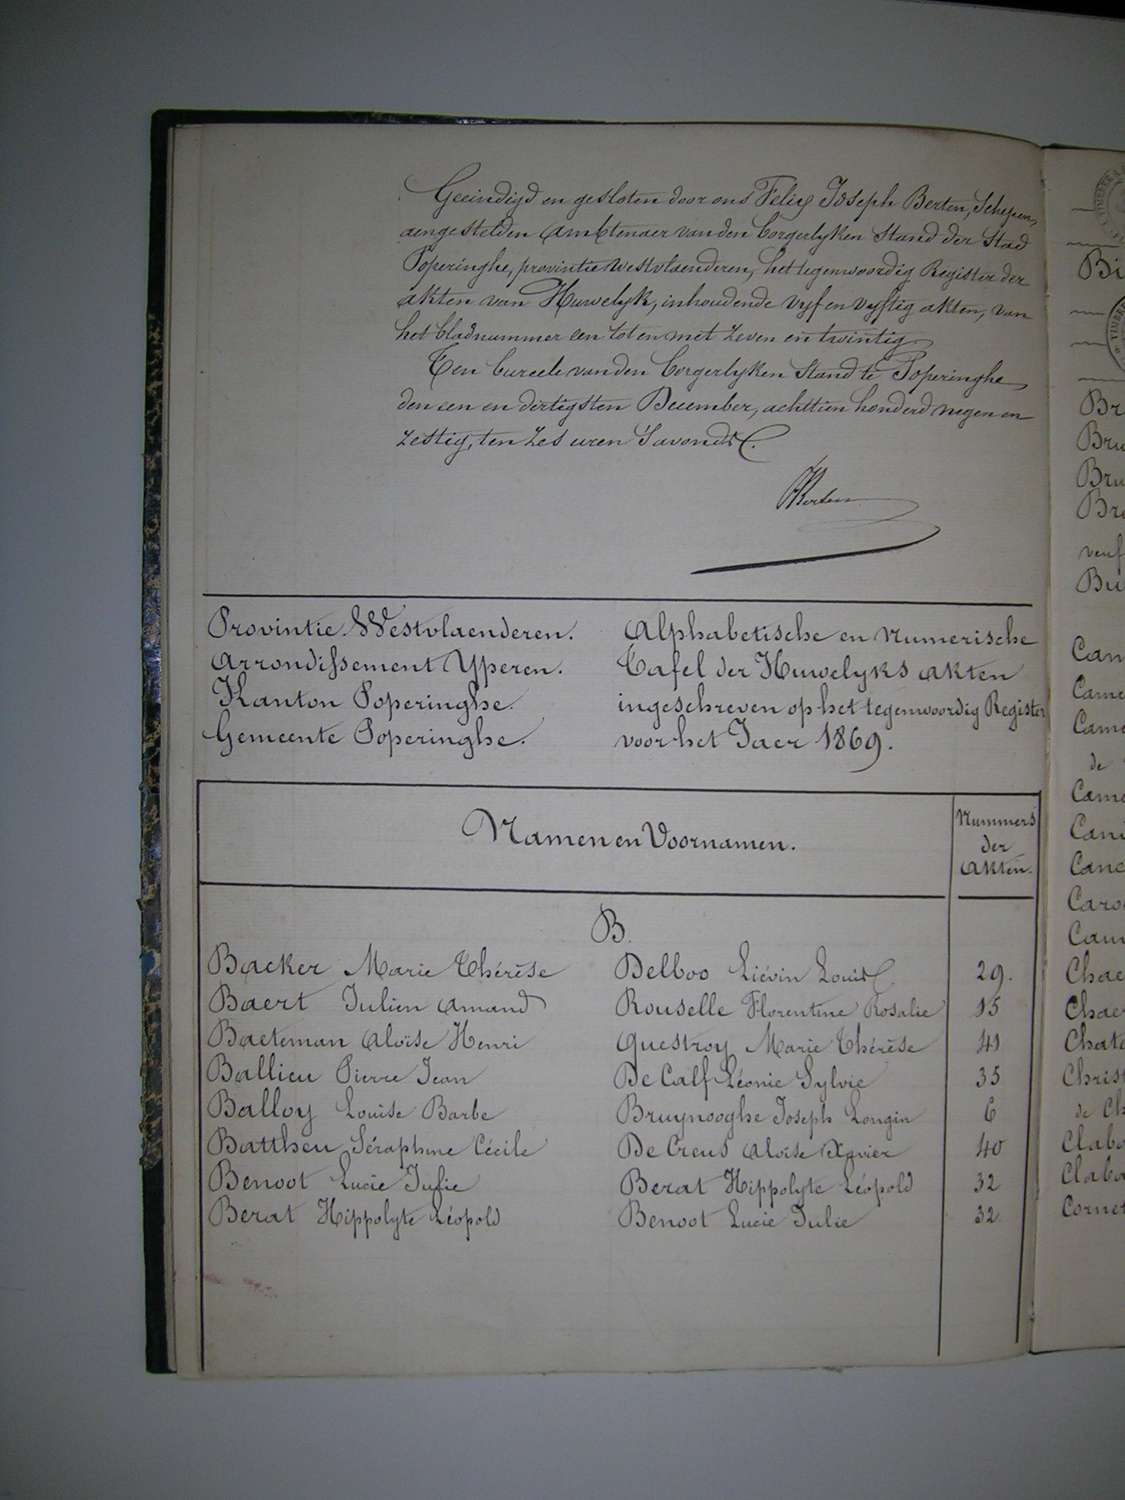 Geeindigd en gesloten door ons Felix Joseph Berten, Schepen,
aengestelden Ambtenaer van den Borgerlyken Stand der Stad
Poperinghe, provintie Westvlaenderen, het tegenwoordig Register der
akten van Huwelyk, inhoudende vyf en vyftig akten, van
het bladnummer een tot en met zeven en twintig.
Ten bureele van den Borgerlyken Stand te Poperinghe
den een en dertigsten December, achttien honderd negen en
zestig, ten zes uren 's avonds.
Berten
Provintie Westvlaenderen.
Arrondissement Yperen.
Kanton Poperinghe.
Gemeente Poperinghe.
Alphabetische en Numerische
Tafel der Huwelyks akten
ingeschreven op het tegenwoordig Register
voor het Jaer 1869.
Namen en Voornamen.
Nummers
der
Akten.
B.
Backer Marie Thérèse Delbos Liévin Louis 29.
Baert Julien Amand Rouselle Florentine Rosalie 15
Baeteman Aloïse Henri Questroy Marie Thérèse 41
Ballieu Pierre Jean De Calf Léonie Sylvie 35
Balloy Louise Barbe Bruynooghe Joseph Longin 6
Battheu Séraphine Cécile De Creus Aloïse Xavier 40
Benoot Lucie Julie Berat Hippolyte Léopold 32
Berat Hippolyte Léopold Benoot Lucie Julie 32
Bi
Br
Bru
Bru
Bu
Cam
Came
Came
de
Came
Cani
Cane
Caro
Chae
Chaer
Chate
Christ
de Ch
Clabo
Claba
Cornet